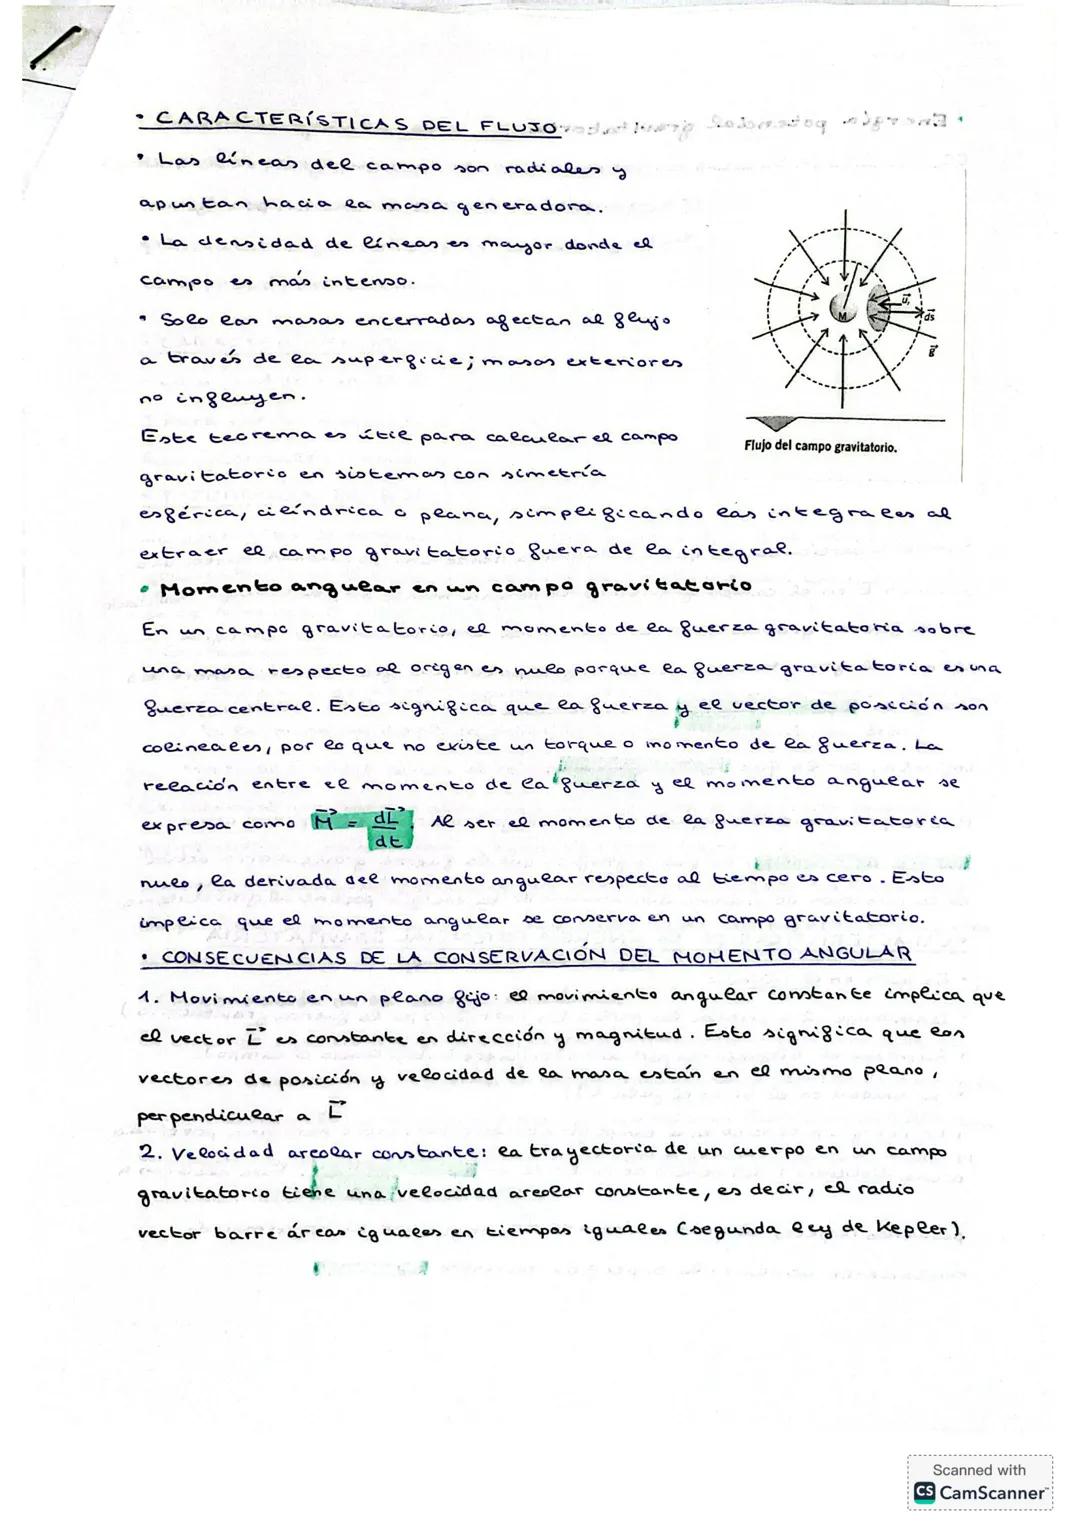 • CARACTERÍSTICAS DEL FLUJO
• Las líneas del campo son radiales y
apuntan hacia la masa generadora.
• La densidad de líneas es mayor donde el
campo es más intenso.
• Solo las masas encerradas afectan al flujo
a través de la superficie; masas exteriores
no influyen.
Este teorema es útil para calcular el campo
gravitatorio en sistemas con simetría
esférica, cilíndrica o plana, simplificando las integrales al
extraer el campo gravitatorio fuera de la integral.
r
M
u⃗r
ds⃗
g⃗
Flujo del campo gravitatorio.
• Momento angular en un campo gravitatorio
En un campo gravitatorio, el momento de la fuerza gravitatoria sobre
una masa respecto al origen es nulo porque la fuerza gravitatoria es una
fuerza central. Esto significa que la fuerza y el vector de posición son
colineales, por lo que no existe un torque o momento de la fuerza. La
relación entre el momento de la fuerza y el momento angular se
expresa como M⃗ = dL⃗/dt. Al ser el momento de la fuerza gravitatoria
nulo, la derivada del momento angular respecto al tiempo es cero. Esto
implica que el momento angular se conserva en un campo gravitatorio.
• CONSECUENCIAS DE LA CONSERVACIÓN DEL MOMENTO ANGULAR
1. Movimiento en un plano fijo: el movimiento angular constante implica que
el vector L⃗ es constante en dirección y magnitud. Esto significa que los
vectores de posición y velocidad de la masa están en el mismo plano,
perpendicular a L⃗
2. Velocidad areolar constante: la trayectoria de un cuerpo en un campo
gravitatorio tiene una velocidad areolar constante, es decir, el radio
vector barre áreas iguales en tiempos iguales (segunda ley de Kepler).
Scanned with
CS CamScanner